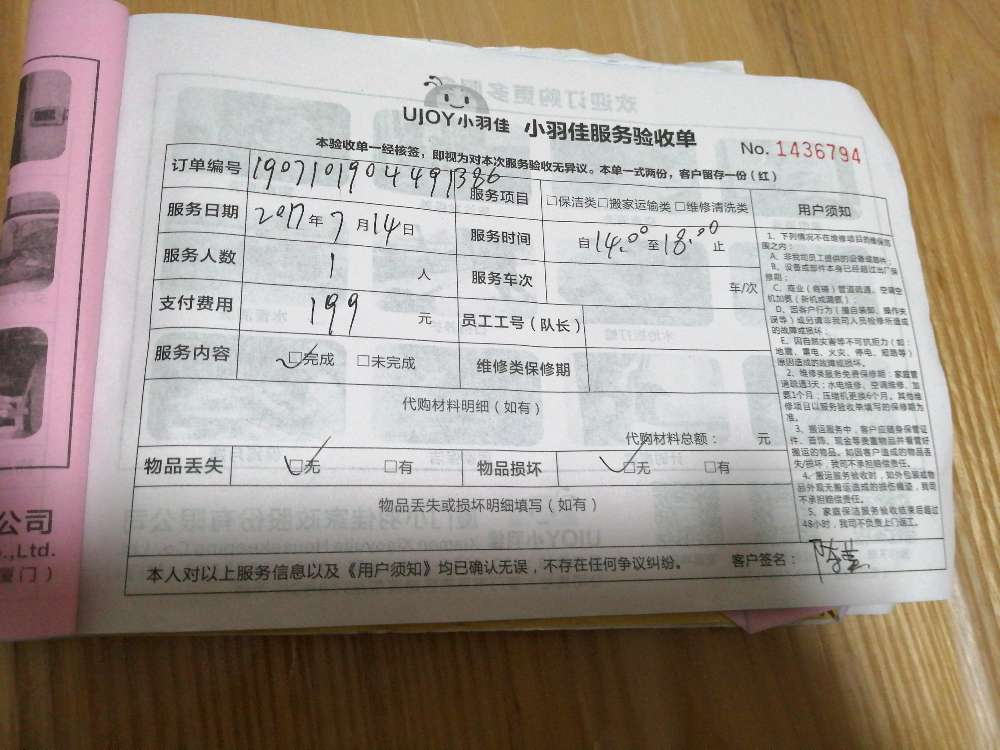 欢迎订购更多服
UJOY小羽佳 小羽佳服务验收单
No. 1436794
本验收单一经核签，即视为对本次服务验收无异议。本单一式两份，客户留存一份（红）
订单编号 1907101904491386 服务项目 □保洁类□搬家运输类□维修清洗类 用户须知
服务日期 2017年7月14日 服务时间 自14:00至18:00止
服务人数 1 人 服务车次 车/次
支付费用 199 元 员工工号（队长）
服务内容 □完成 □未完成 维修类保修期
代购材料明细（如有）
代购材料总额： 元
物品丢失 □无 □有 物品损坏 □无 □有
物品丢失或损坏明细填写（如有）
本人对以上服务信息以及《用户须知》均已确认无误，不存在任何争议纠纷。 客户签名：
1、下列情况不在维修项目的维保范
围之内：
A、非我司员工提供的设备或部件；
B、设备或部件本身已经超过出厂保
修期；
C、商业（商铺）管道疏通、空调空
机加氨（新机或漏氨）；
D、因客户行为（擅自装卸、操作失
误等）或另请非我司人员检修所造成
的故障或损坏；
E、因自然灾害等不可抗拒力（如：
地震、雷电、火灾、停电、短路等）
原因造成的故障或损坏。
2、维修类服务免费保修期：家庭管
道疏通3天；水电维修、空调维修、加
氨1个月；压缩机更换6个月。其他维
修项目以服务验收单填写的保修期为
准。
3、搬运服务中，客户应随身保管证
件、首饰、现金等贵重物品并看管好
搬运的物品。如因客户造成的物品丢
失/损坏，我司不承担赔偿责任。
4、搬运服务验收时，如外包装或物
品外观无搬运造成的损伤痕迹，我司
不承担赔偿责任。
5、家庭保洁服务验收结束后超过
48小时，我司不负责上门返工。
公司
.,Ltd.
厦门）